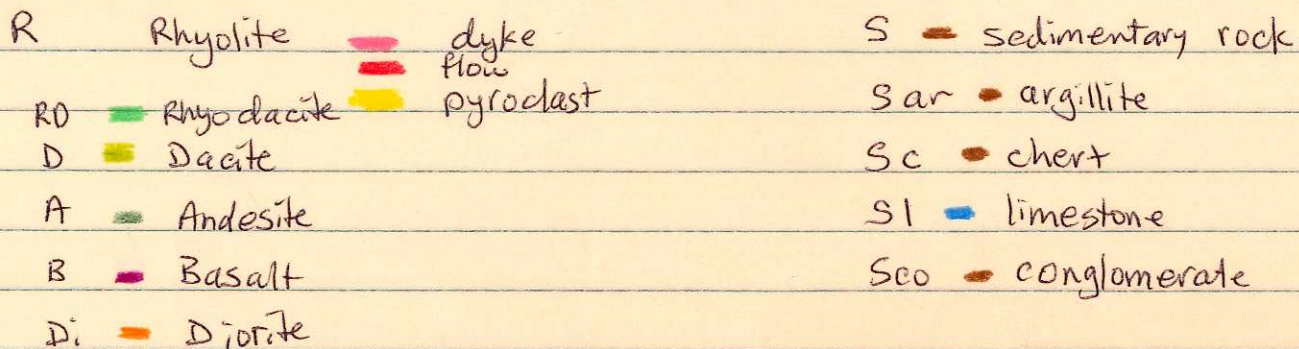 R Rhyolite dyke
flow
pyroclast
RD Rhyodacite
D Dacite
A Andesite
B Basalt
Di Diorite
S sedimentary rock
Sar argillite
Sc chert
Sl limestone
Sco conglomerate